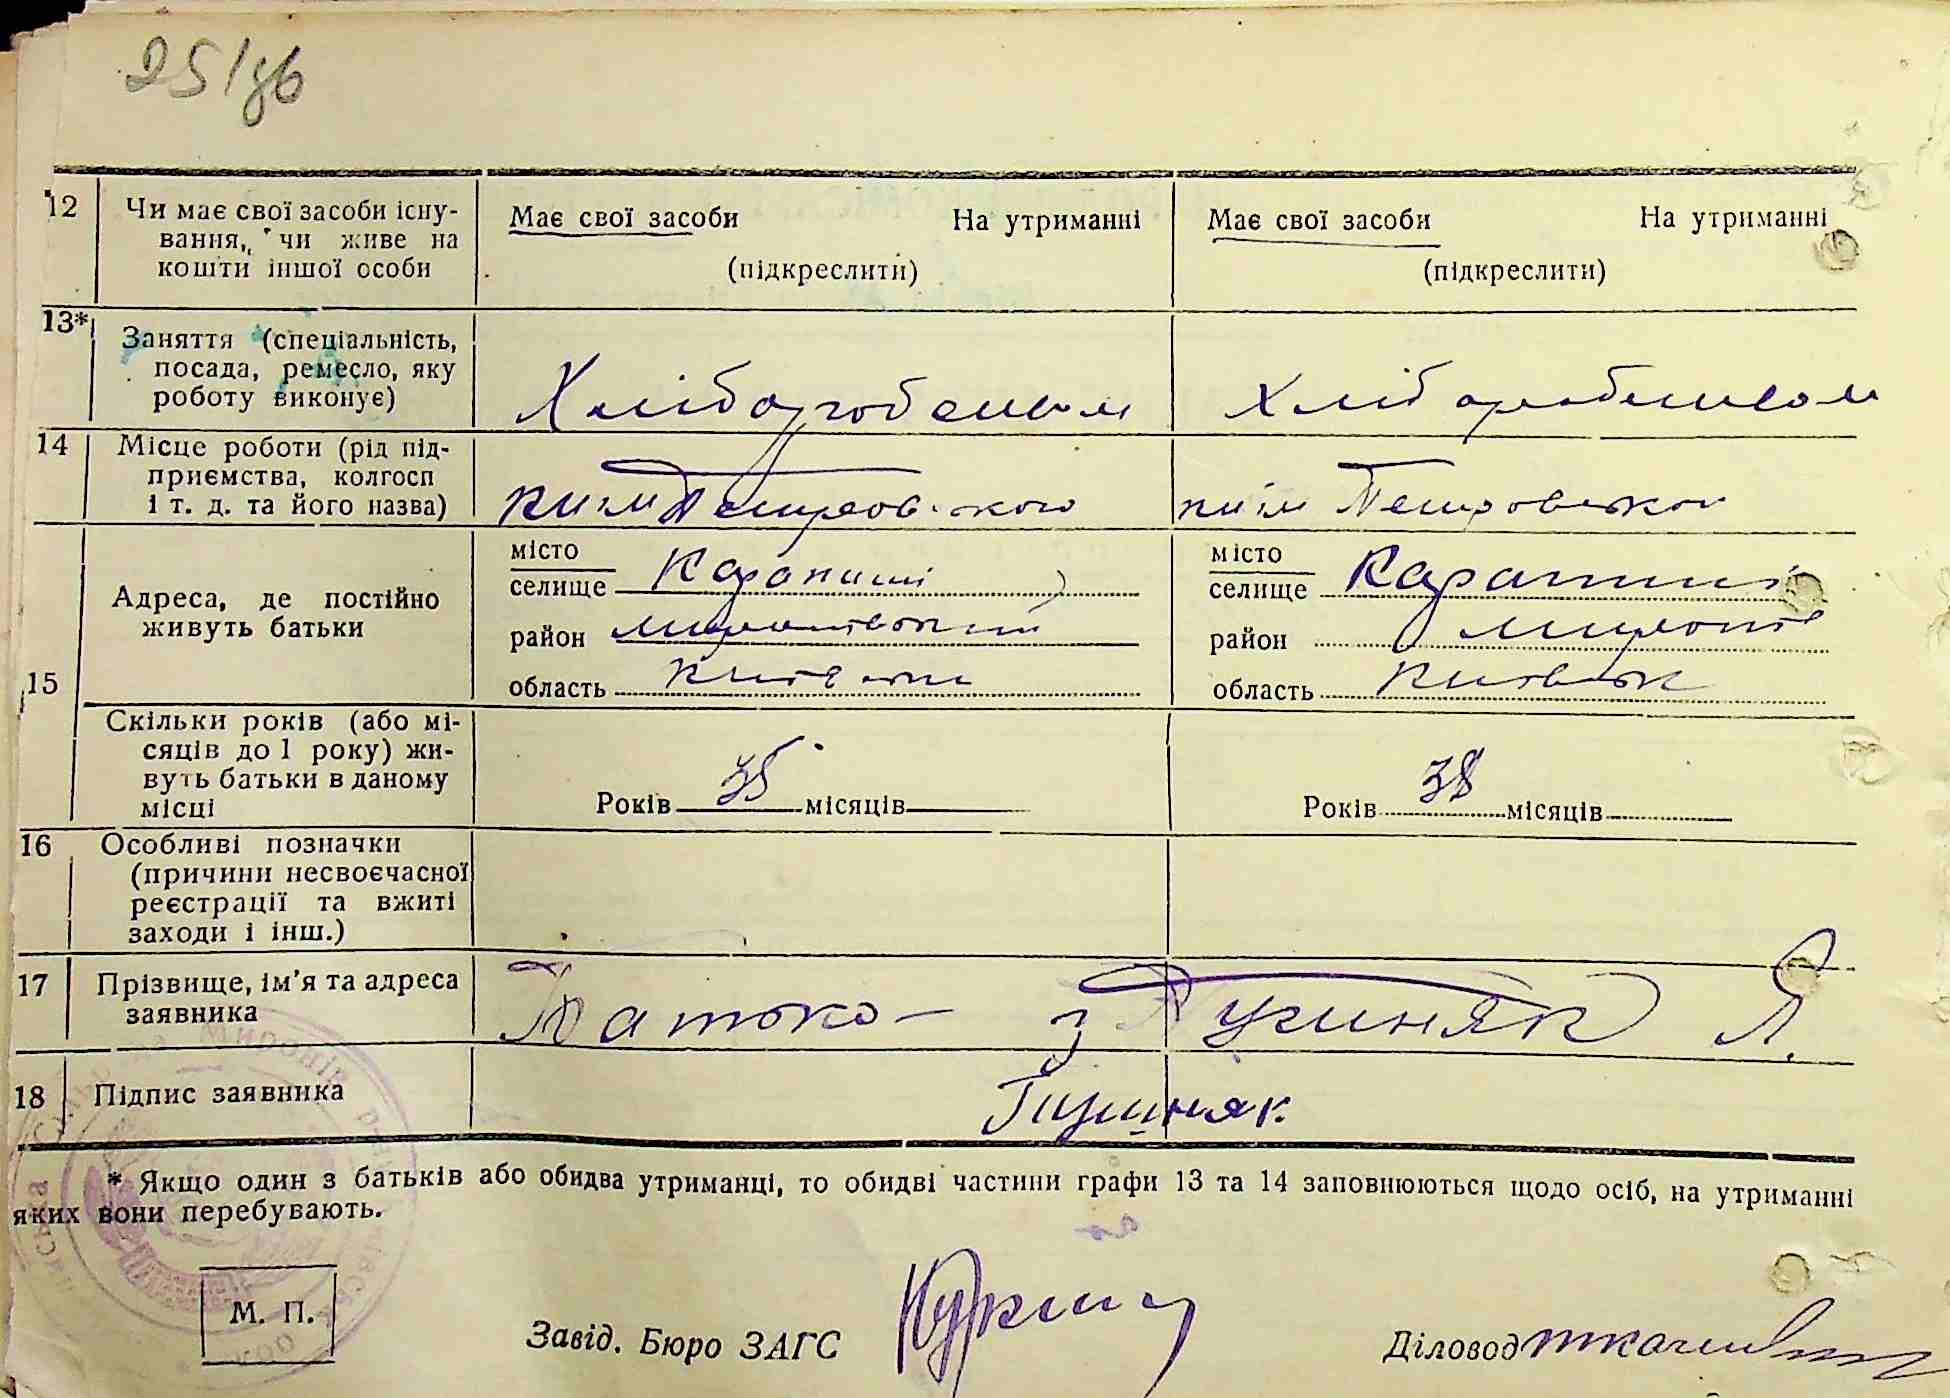 251 зв
12 Чи має свої засоби існу-
вання, чи живе на
кошти іншої особи
Має свої засоби На утриманні
(підкреслити)
Має свої засоби На утриманні
(підкреслити)
13* Заняття (спеціальність,
посада, ремесло, яку
роботу виконує)
Хліборобством
Хліборобством
14 Місце роботи (рід під-
приємства, колгосп
і т. д. та його назва)
к им Петровського
к им Петровського
15 Адреса, де постійно
живуть батьки
місто
селище Карапиші
район Миронівський
область Київськ
місто
селище Карапиші
район Миронів
область Київськ
Скільки років (або мі-
сяців до 1 року) жи-
вуть батьки в даному
місці
Років 35 місяців
Років 38 місяців
16 Особливі позначки
(причини несвоєчасної
реєстрації та вжиті
заходи і інш.)
17 Прізвище, ім'я та адреса
заявника
Батько —
18 Підпис заявника
* Якщо один з батьків або обидва утриманці, то обидві частини графи 13 та 14 заповнюються щодо осіб, на утриманні
яких вони перебувають.
М. П.
Завід. Бюро ЗАГС
Діловод